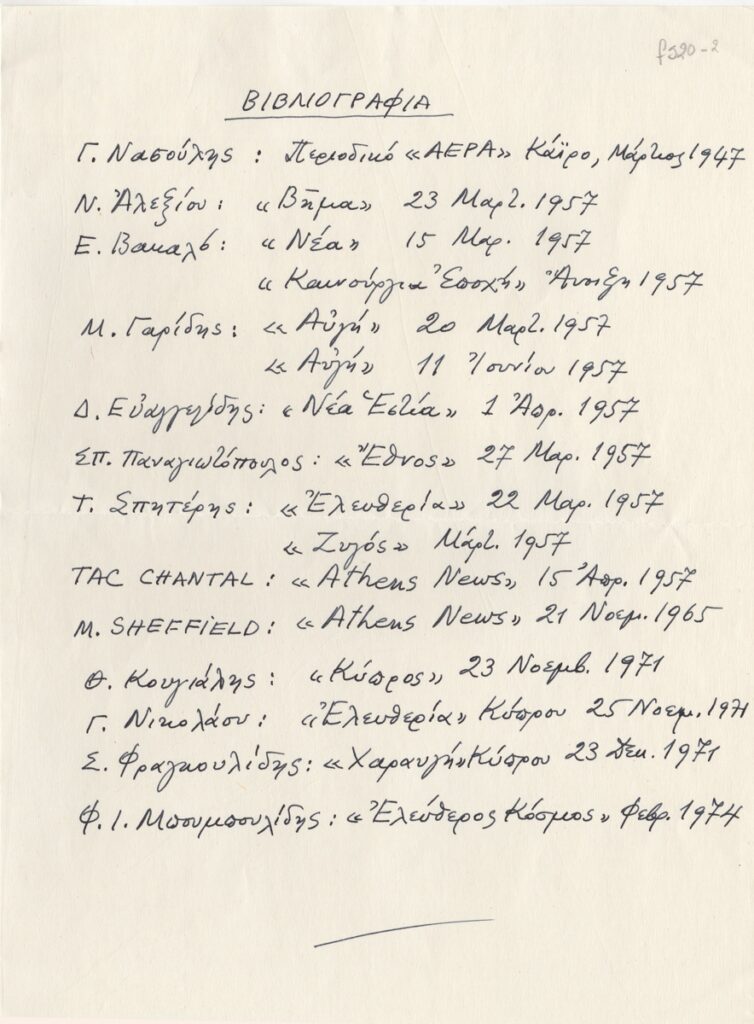 f320-2
ΒΙΒΛΙΟΓΡΑΦΙΑ
Γ. Νασούλης : Περιοδικό «ΑΕΡΑ» Κάϊρο, Μάρτιος 1947
Ν. Ἀλεξίου : «Βῆμα» 23 Μαρτ. 1957
Ε. Βακαλό : «Νέα» 15 Μαρ. 1957
«Καινούργια Ἐποχή» Ἄνοιξη 1957
Μ. Γαρίδης : «Αὐγή» 20 Μαρτ. 1957
«Αὐγή» 11 Ἰουνίου 1957
Δ. Εὐαγγελίδης : «Νέα Ἑστία» 1 Ἀπρ. 1957
ΣΠ. Παναγιωτόπουλος : «Ἔθνος» 27 Μαρ. 1957
Τ. Σπητέρης : «Ἐλευθερία» 22 Μαρ. 1957
«Ζυγός» Μάρτ. 1957
TAC CHANTAL : «Athens News» 15 Ἀπρ. 1957
M. SHEFFIELD : «Athens News» 21 Νοεμ. 1965
Θ. Κουγιάλης : «Κύπρος» 23 Νοεμβ. 1971
Γ. Νικολάου : «Ἐλευθερία» Κύπρου 25 Νοεμ. 1971
Σ. Φραγκουλίδης : «Χαραυγή» Κύπρου 23 Δεκ. 1971
Φ. Ι. Μπουμπουλίδης : «Ἐλεύθερος Κόσμος» Φεβρ. 1974